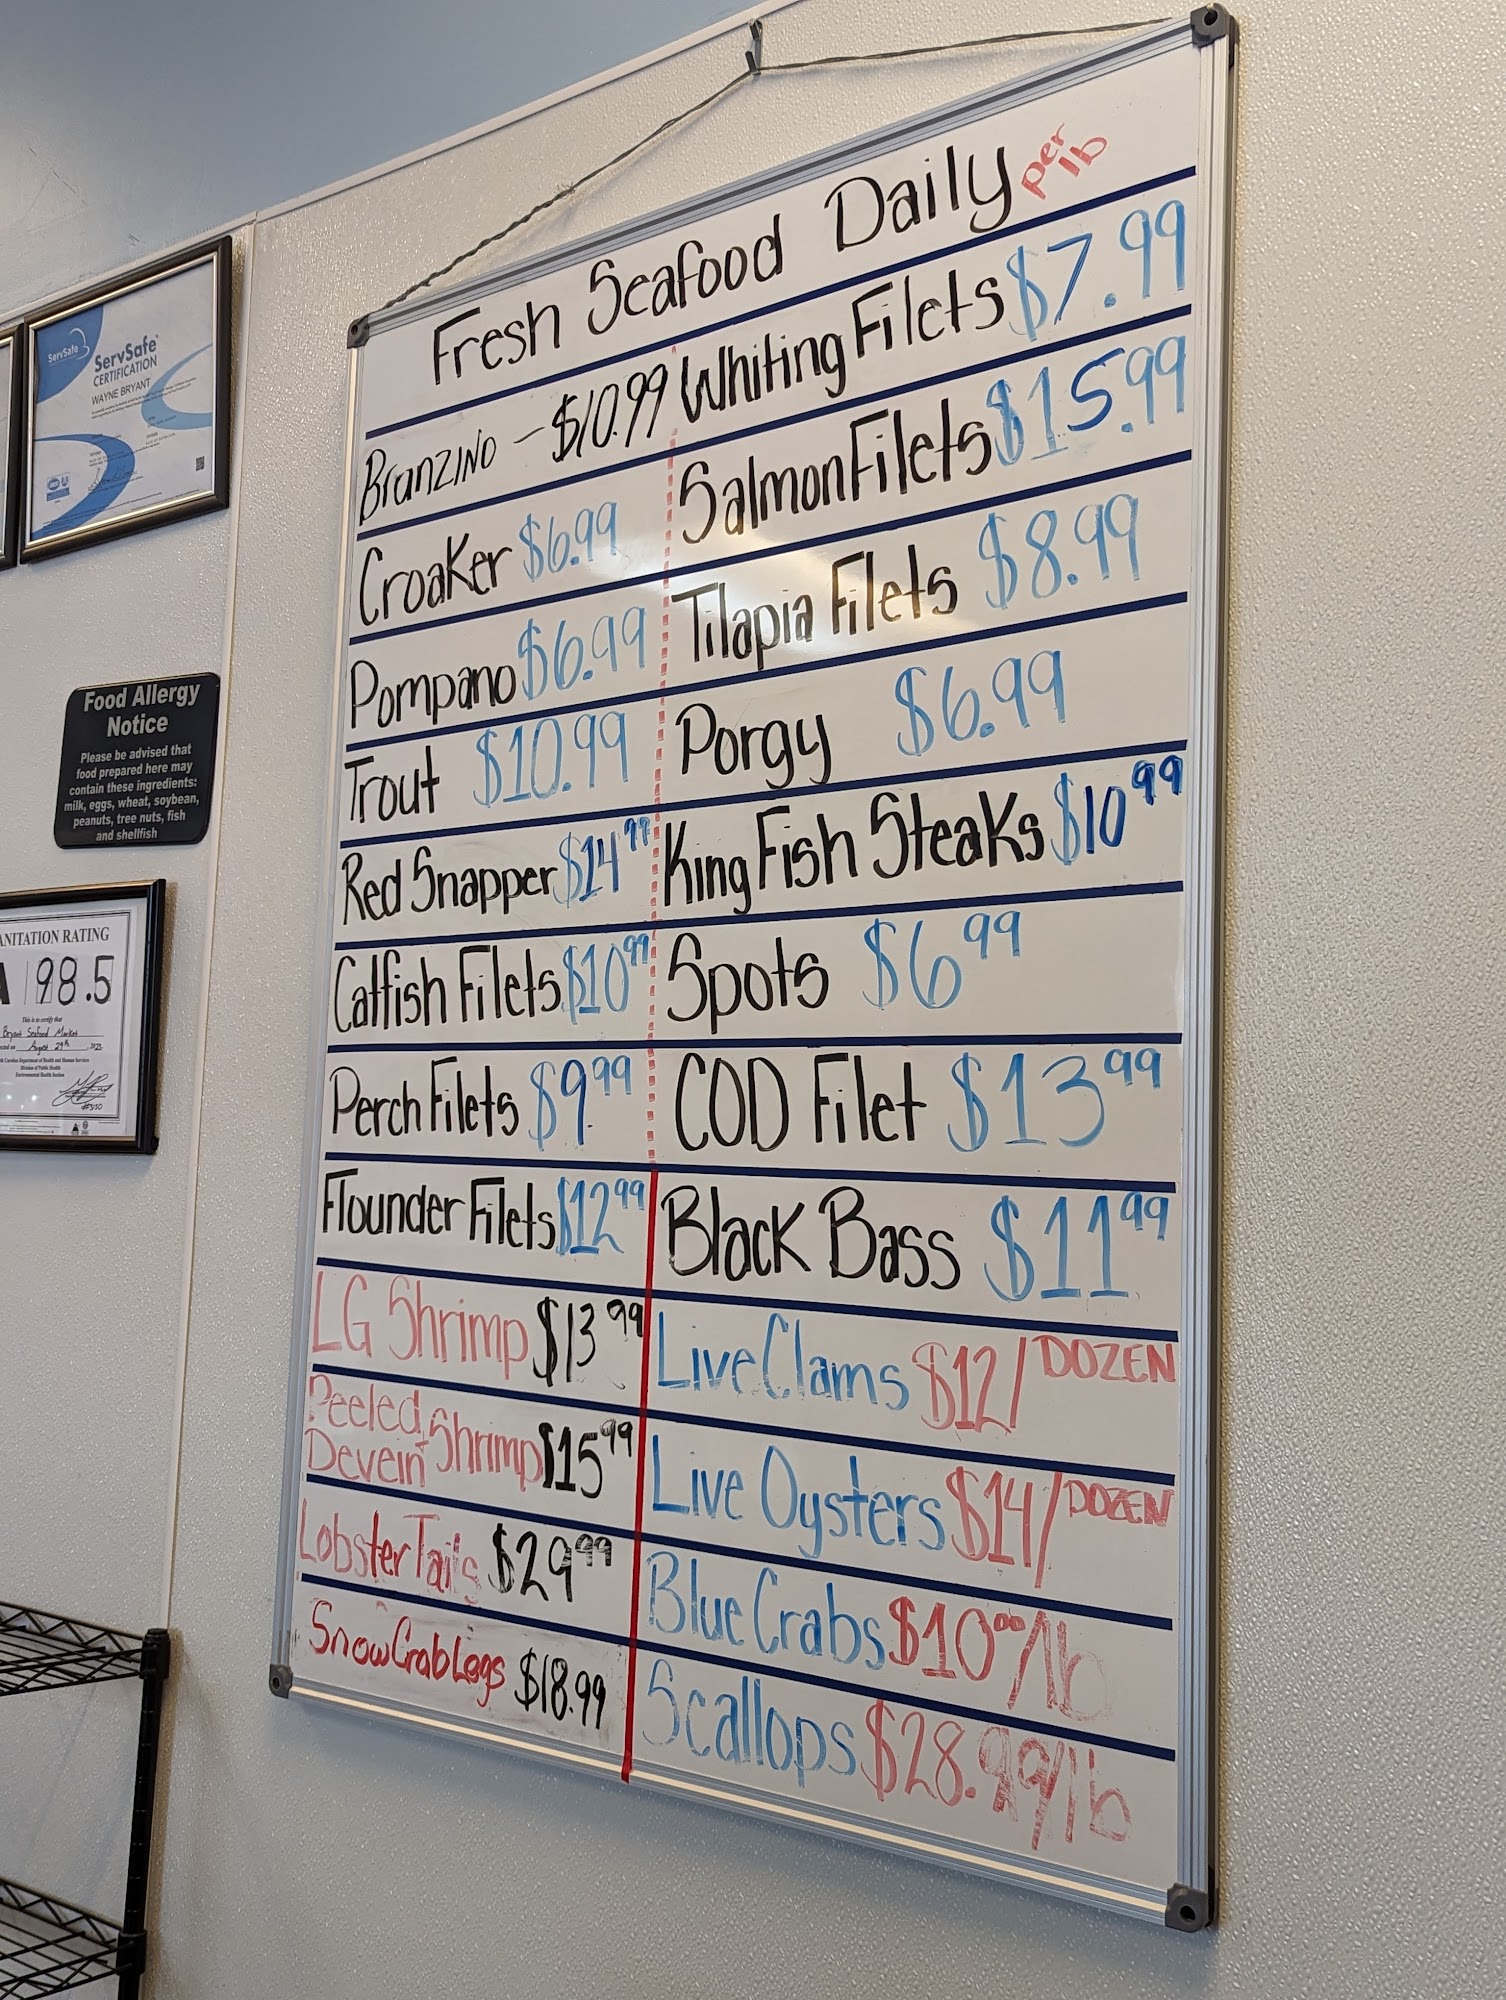 Fresh Seafood Daily per lb
Branzino – $10.99
Croaker $6.99
Pompano $6.99
Trout $10.99
Red Snapper $14.99
Catfish Filets $10.99
Perch Filets $9.99
Flounder Filets $12.99
LG Shrimp $13.99
Peeled + Devein Shrimp $15.99
Lobster Tails $29.99
Snow Crab Legs $18.99
Whiting Filets $7.99
Salmon Filets $15.99
Tilapia Filets $8.99
Porgy $6.99
King Fish Steaks $10.99
Spots $6.99
COD Filet $13.99
Black Bass $11.99
Live Clams $12/DOZEN
Live Oysters $14/DOZEN
Blue Crabs $10.00/lb
Scallops $28.99/lb
ServSafe
ServSafe
CERTIFICATION
WAYNE BRYANT
Food Allergy
Notice
Please be advised that
food prepared here may
contain these ingredients:
milk, eggs, wheat, soybean,
peanuts, tree nuts, fish
and shellfish
ANITATION RATING
A 98.5
This is to certify that
Bryant Seafood Market
August 29th
Carolina Department of Health and Human Services
Division of Public Health
Environmental Health Section